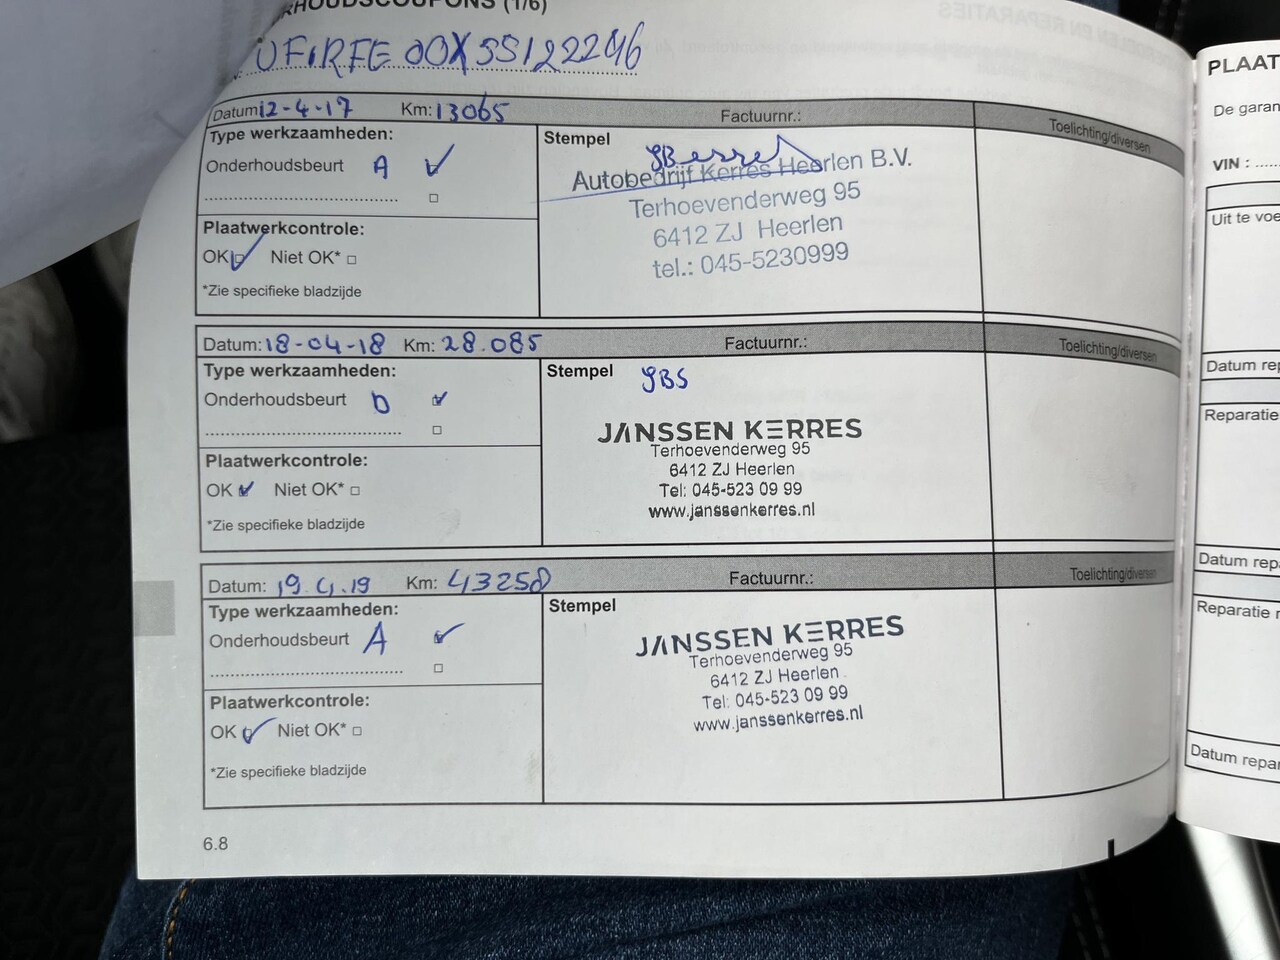 RHOUDSCOUPONS (1/6)
UFIRFE00X55122246
Datum: 12-4-17 Km: 13065 Factuurnr.: Toelichting/diversen
Type werkzaamheden:
Onderhoudsbeurt A
Plaatwerkcontrole:
OK Niet OK*
*Zie specifieke bladzijde
Stempel
Autobedrijf Kerres Heerlen B.V.
Terhoevenderweg 95
6412 ZJ Heerlen
tel.: 045-5230999
Datum: 18-04-18 Km: 28.085 Factuurnr.: Toelichting/diversen
Type werkzaamheden:
Onderhoudsbeurt D
Plaatwerkcontrole:
OK Niet OK*
*Zie specifieke bladzijde
Stempel
JANSSEN KERRES
Terhoevenderweg 95
6412 ZJ Heerlen
Tel: 045-523 09 99
www.janssenkerres.nl
Datum: 19.4.19 Km: 43258 Factuurnr.: Toelichting/diversen
Type werkzaamheden:
Onderhoudsbeurt A
Plaatwerkcontrole:
OK Niet OK*
*Zie specifieke bladzijde
Stempel
JANSSEN KERRES
Terhoevenderweg 95
6412 ZJ Heerlen
Tel: 045-523 09 99
www.janssenkerres.nl
6.8
PLAAT
De garan
VIN :
Uit te voe
Datum rep
Reparatie
Datum rep
Reparatie
Datum repar